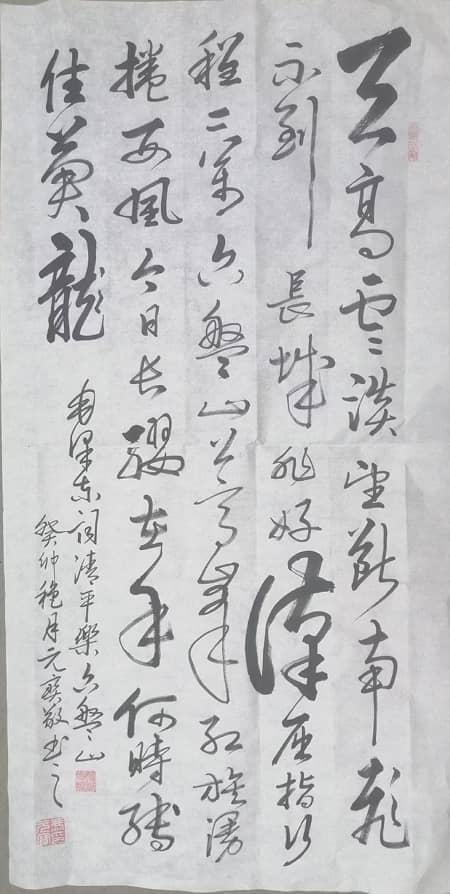 天高雲淡望斷南飛
不到長城非好漢屈指行
程二萬六盤山上高峰紅旗漫
捲西風今日長纓在手何時縛
住蒼龍
毛澤東詞清平樂六盤山
癸卯穐月元敬書之